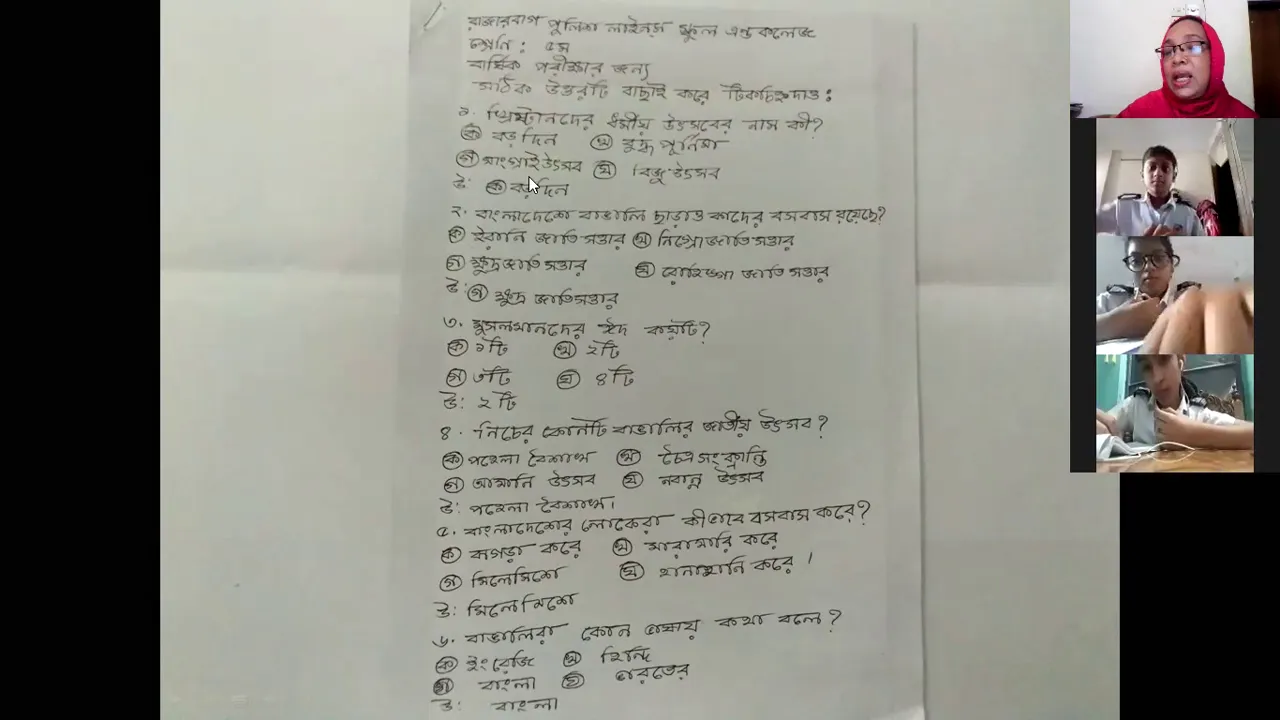 রাজারবাগ পুলিশ লাইনস্ স্কুল এন্ড কলেজ
শ্রেণি : ৫ম
বার্ষিক পরীক্ষার জন্য
সঠিক উত্তরটি বাছাই করে টিকচিহ্ন দাও :
১. খ্রিস্টানদের ধর্মীয় উৎসবের নাম কী?
ক বড়দিন খ বুদ্ধ পূর্ণিমা
গ সাংগ্রাই উৎসব ঘ বিজু উৎসব
উ: ক বড়দিন
২. বাংলাদেশে বাঙালি ছাড়াও কাদের বসবাস রয়েছে?
ক ইরানি জাতি সত্তার খ নিগ্রো জাতি সত্তার
গ ক্ষুদ্র জাতি সত্তার ঘ রোহিঙ্গা জাতি সত্তার
উ: গ ক্ষুদ্র জাতিসত্তার
৩. মুসলমানদের ঈদ কয়টি?
ক ১টি খ ২টি
গ ৩টি ঘ ৪টি
উ: ২টি
৪. নিচের কোনটি বাঙালির জাতীয় উৎসব?
ক পহেলা বৈশাখ খ চৈত্র সংক্রান্তি
গ আসানি উৎসব ঘ নবান্ন উৎসব
উ: পহেলা বৈশাখ।
৫. বাংলাদেশের লোকেরা কীভাবে বসবাস করে?
ক ঝগড়া করে খ মারামারি করে
গ মিলেমিশে ঘ হানাহানি করে।
উ: মিলেমিশে
৬. বাঙালিরা কোন ভাষায় কথা বলে?
ক ইংরেজি খ হিন্দি
গ বাংলা ঘ ভারতের
উ: বাংলা